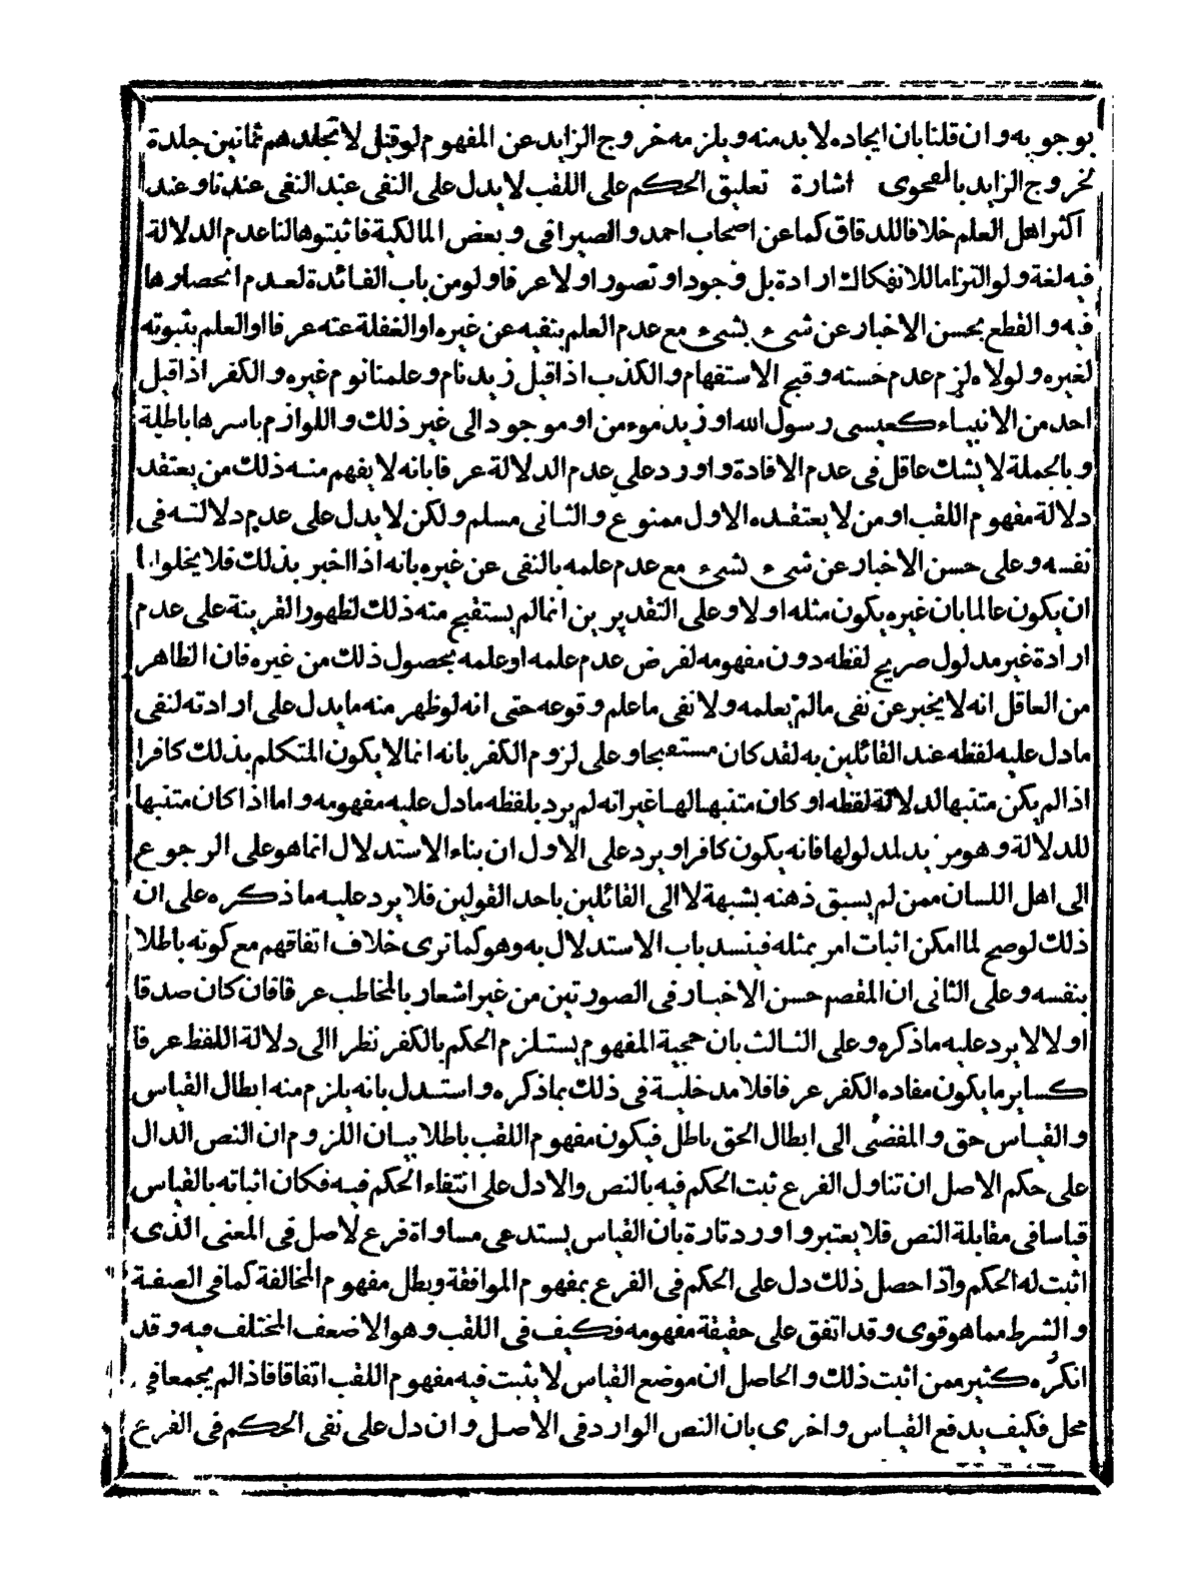 بوجوبه وان قلنا بان ايجاده لا بد منه ويلزمه خروج الزايد عن المفهوم لوقيل لا تجلدهم ثمانين جلدة
لخروج الزايد بالفحوى اشارة تعليق الحكم على اللقب لا يدل على النفى عند النفى عندنا وعند
اكثر اهل العلم خلافا للدقاق كما عن اصحاب احمد والصيرافى وبعض المالكية فاثبتوها لنا عدم الدلالة
فيه لغة ولو التزاما للانفكاك ارادة بل وجودا وتصورا ولا عرفا ولو من باب الفائدة لعدم انحصارها
فيه والقطع بحسن الاخبار عن شىء بشىء مع عدم العلم بنفيه عن غيره او الغفلة عنه عرفا او العلم بثبوته
لغيره ولولاه لزم عدم حسنه وقبح الاستفهام والكذب اذا قيل زيد نام وعلمنا نوم غيره والكفر اذا قيل
احد من الانبياء كعيسى رسول الله او زيد موءمن او موجود الى غير ذلك واللوازم باسرها باطلة
وبالجملة لا يشك عاقل فى عدم الافادة واورد على عدم الدلالة عرفا بانه لا يفهم منه ذلك من يعتقد
دلالة مفهوم اللقب او من لا يعتقده الاول ممنوع والثانى مسلم ولكن لا يدل على عدم دلالته فى
نفسه وعلى حسن الاخبار عن شىء بشىء مع عدم علمه بالنفى عن غيره بانه اذا اخبر بذلك فلا يخلوا
ان يكون عالما بان غيره يكون مثله او لا وعلى التقديرين انما لم يستقبح منه ذلك لظهور القرينة على عدم
ارادة غير مدلول صريح لفظه دون مفهومه لفرض عدم علمه او علمه بحصول ذلك من غيره فان الظاهر
من العاقل انه لا يخبر عن نفى ما لم يعلمه ولا نفى ما علم وقوعه حتى انه لو ظهر منه ما يدل على ارادته لنفى
ما دل عليه لفظه عند القائلين به لقد كان مستقبحا وعلى لزوم الكفر بانه انما لا يكون المتكلم بذلك كافرا
اذا لم يكن متنبها لدلالة لفظه او كان متنبها لها غير انه لم يرد بلفظه ما دل عليه مفهومه واما اذا كان متنبها
للدلالة وهو مريد لمدلولها فانه يكون كافرا ويرد على الاول ان بناء الاستدلال انما هو على الرجوع
الى اهل اللسان ممن لم يسبق ذهنه بشبهة لا الى القائلين باحد القولين فلا يرد عليه ما ذكره على ان
ذلك لو صح لما امكن اثبات امر بمثله فينسد باب الاستدلال به وهو كما ترى خلاف اتفاقهم مع كونه باطلا
بنفسه وعلى الثانى ان المفصم حسن الاخبار فى الصورتين من غير اشعار بالمخاطب عرفا فان كان صدقا
اولا لا يرد عليه ما ذكره وعلى الثالث بان حجية المفهوم يستلزم الحكم بالكفر نظرا الى دلالة اللفظ عرفا
كساير ما يكون مفاده الكفر عرفا فلا مدخلية فى ذلك بما ذكره واستدل بانه يلزم منه ابطال القياس
والقياس حق والمفضى الى ابطال الحق باطل فيكون مفهوم اللقب باطلا بيان اللزوم ان النص الدال
على حكم الاصل ان تناول الفرع ثبت الحكم فيه بالنص والا دل على انتفاء الحكم فيه فكان اثباته بالقياس
قياسا فى مقابلة النص فلا يعتبر واورد تارة بان القياس يستدعى مساواة فرع لاصل فى المعنى الذى
اثبت له الحكم واذا حصل ذلك دل على الحكم فى الفرع بمفهوم الموافقة وبطل مفهوم المخالفة كما فى الصفة
والشرط مما هو قوى وقد اتفق على حقيقة مفهومه فكيف فى اللقب وهو الاضعف المختلف فيه وقد
انكره كثير ممن اثبت ذلك والحاصل ان موضع القياس لا يثبت فيه مفهوم اللقب اتفاقا فاذا لم يجمعا فى
محل فكيف يدفع القياس واخرى بان النص الوارد فى الاصل وان دل على نفى الحكم فى الفرع